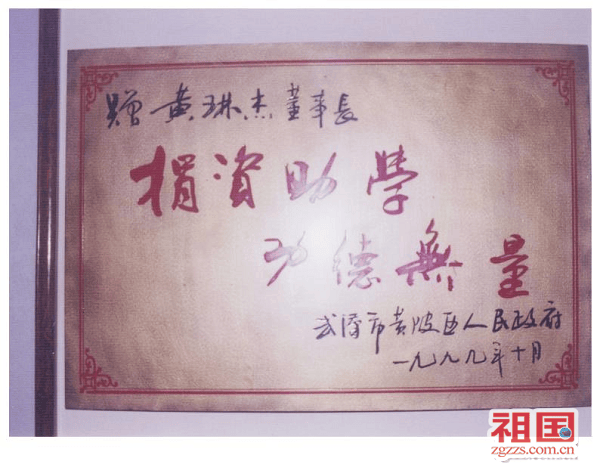 赠黄琳杰董事長
捐资助學
功德無量
武汉市黄陂区人民政府
一九九九年十月
祖国
zgzzs.com.cn